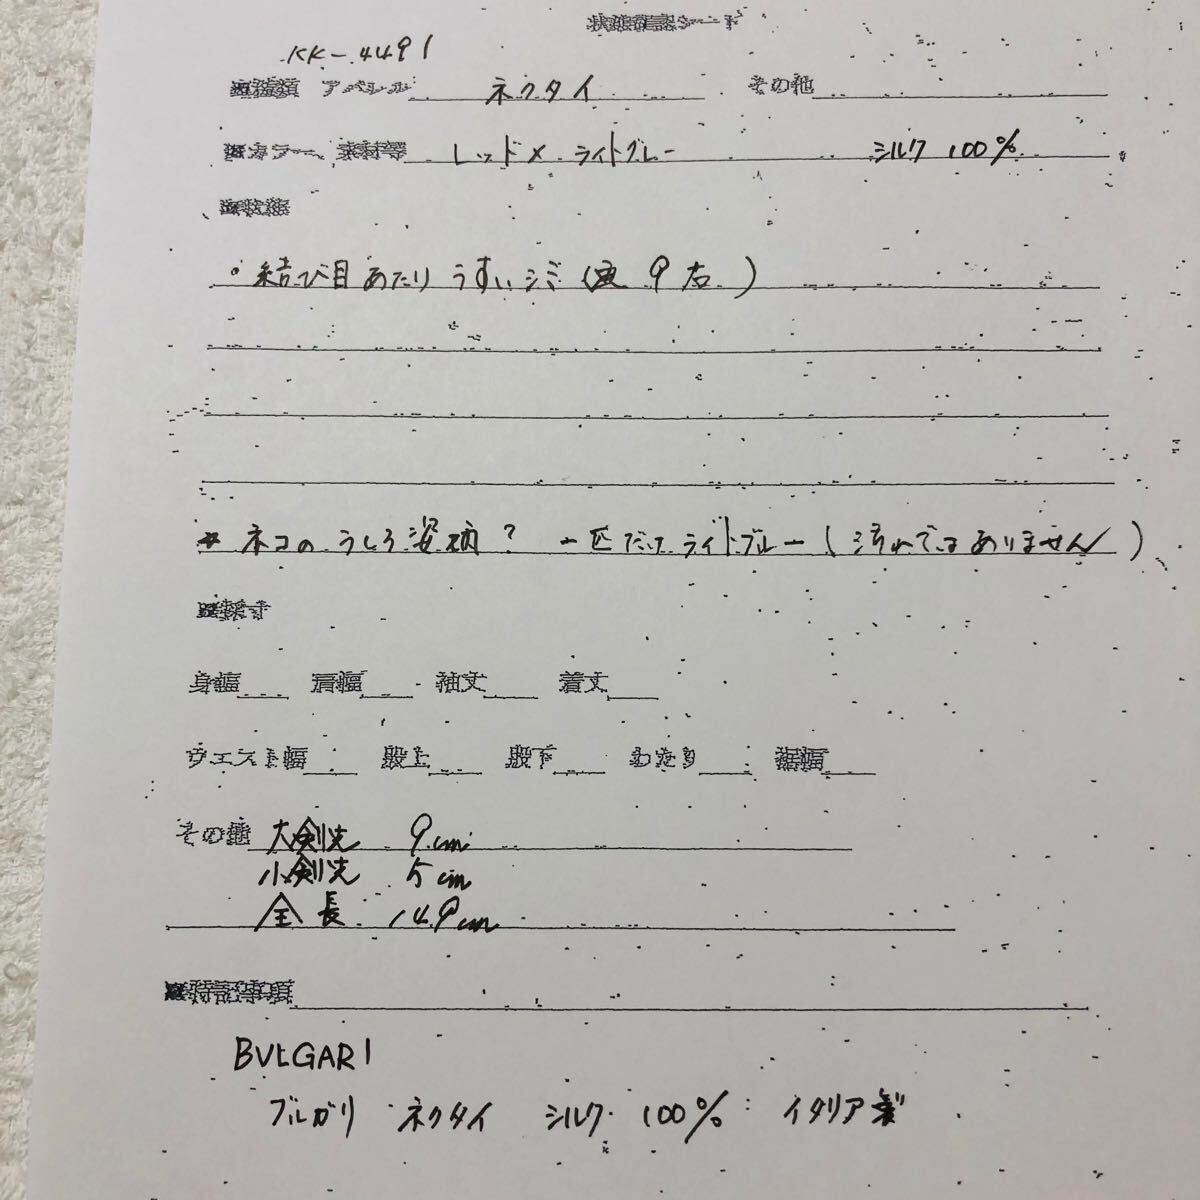 状態確認シート
KK-4491
■種類 アパレル ネクタイ その他
■カラー、素材等 レッド×ライトグレー シルク 100%
■状態
・結び目あたりうすいシミ( 9 右)
* ネコのうしろ姿柄? 一匹だけライトブルー(汚れではありません)
■採寸
身幅 肩幅 袖丈 着丈
ウエスト幅 股上 股下 わたり 裾幅
その他 大剣先 9cm
小剣先 5cm
全長 149cm
■特記事項
BVLGARI
ブルガリ ネクタイ シルク 100% イタリア製